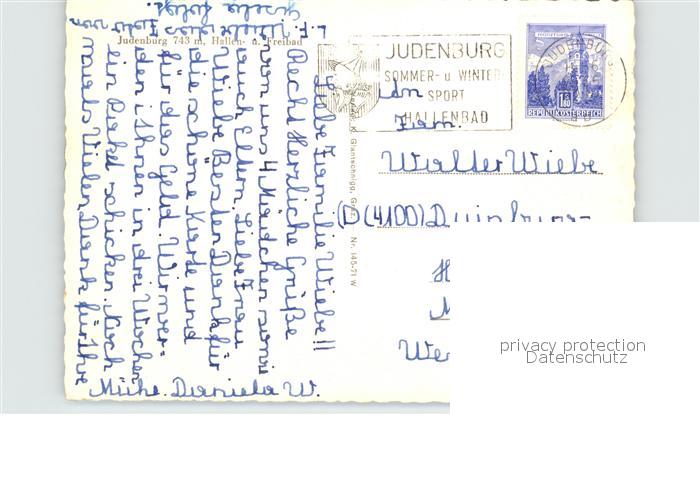 L. F. Wiebe das Foto von
Gisela folgt.
Judenburg 743 m, Hallen- u. Freibad
Liebe Familie Wiebe!!
Recht Herzliche Grüße
von uns 4 Mädchen sowie
auch Eltern. Liebe Frau
Wiebe Besten Dank für
die schöne Karte und
für das Geld. Wir wer-
den Ihnen in drei Wochen
ein Packet schicken. Noch
mals Vielen Dank für Ihre
Mühe. Daniela W.
Nr. 145-71 W
JUDENBURG
SOMMER- u WINTER
SPORT
HALLENBAD
JUDENBURG
1.80
REPUBLIK ÖSTERREICH
An
Fam.
Walter Wiebe
(D) (4100) Duisburg-
H
We
privacy protection
Datenschutz